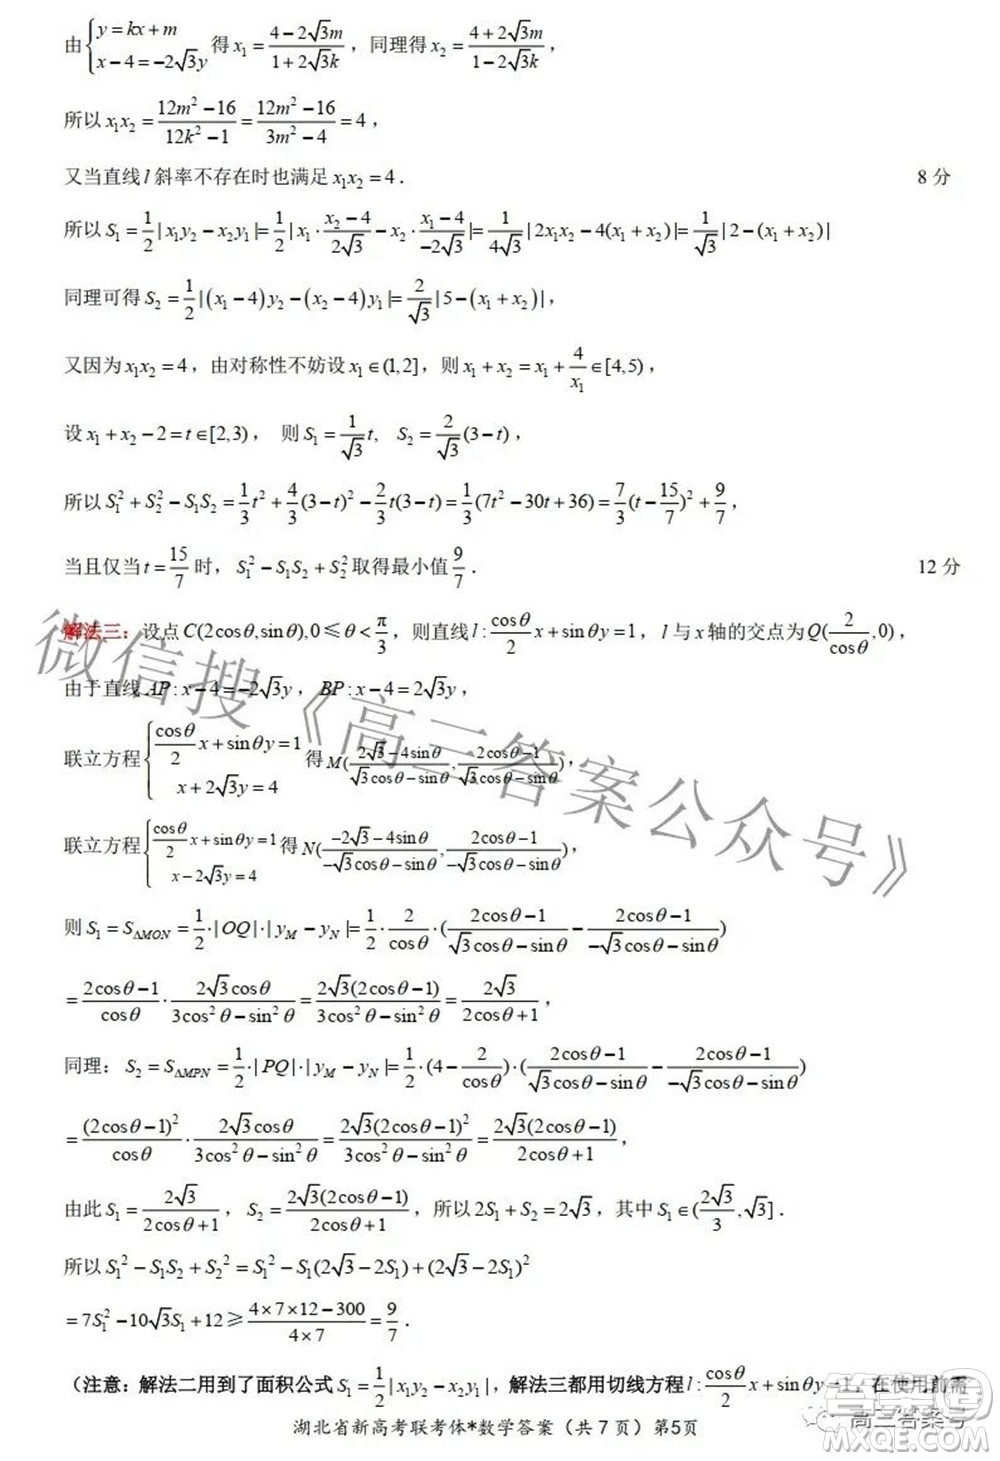 由{y=kx+m, x-4=-2√3y 得 x₁=(4-2√3m)/(1+2√3k)，同理得 x₂=(4+2√3m)/(1-2√3k)，
所以 x₁x₂=(12m²-16)/(12k²-1)=(12m²-16)/(3m²-4)=4，
又当直线 l 斜率不存在时也满足 x₁x₂=4． 8分
所以 S₁=1/2|x₁y₂-x₂y₁|=1/2|x₁·(x₂-4)/(2√3)-x₂·(x₁-4)/(-2√3)|=1/(4√3)|2x₁x₂-4(x₁+x₂)|=1/√3|2-(x₁+x₂)|
同理可得 S₂=1/2|(x₁-4)y₂-(x₂-4)y₁|=2/√3|5-(x₁+x₂)|，
又因为 x₁x₂=4，由对称性不妨设 x₁∈(1,2]，则 x₁+x₂=x₁+4/x₁∈[4,5)，
设 x₁+x₂-2=t∈[2,3)， 则 S₁=1/√3 t, S₂=2/√3(3-t)，
所以 S₁²+S₂²-S₁S₂=1/3t²+4/3(3-t)²-2/3t(3-t)=1/3(7t²-30t+36)=7/3(t-15/7)²+9/7，
当且仅当 t=15/7 时，S₁²-S₁S₂+S₂² 取得最小值 9/7． 12分
解法三：设点 C(2cosθ,sinθ),0≤θ<π/3，则直线 l:cosθ/2 x+sinθy=1，l 与 x 轴的交点为 Q(2/cosθ,0)，
由于直线 AP:x-4=-2√3y，BP:x-4=2√3y，
联立方程{cosθ/2 x+sinθy=1, x+2√3y=4 得 M((2√3-4sinθ)/(√3cosθ-sinθ),(2cosθ-1)/(√3cosθ-sinθ))，
联立方程{cosθ/2 x+sinθy=1, x-2√3y=4 得 N((-2√3-4sinθ)/(-√3cosθ-sinθ),(2cosθ-1)/(-√3cosθ-sinθ))，
则 S₁=S△MON=1/2·|OQ|·|y_M-y_N|=1/2·2/cosθ·((2cosθ-1)/(√3cosθ-sinθ)-(2cosθ-1)/(-√3cosθ-sinθ))
=(2cosθ-1)/cosθ·2√3cosθ/(3cos²θ-sin²θ)=2√3(2cosθ-1)/(3cos²θ-sin²θ)=2√3/(2cosθ+1)，
同理：S₂=S△MPN=1/2·|PQ|·|y_M-y_N|=1/2·(4-2/cosθ)·((2cosθ-1)/(√3cosθ-sinθ)-(2cosθ-1)/(-√3cosθ-sinθ))
=(2cosθ-1)²/cosθ·2√3cosθ/(3cos²θ-sin²θ)=2√3(2cosθ-1)²/(3cos²θ-sin²θ)=2√3(2cosθ-1)/(2cosθ+1)，
由此 S₁=2√3/(2cosθ+1)，S₂=2√3(2cosθ-1)/(2cosθ+1)，所以 2S₁+S₂=2√3，其中 S₁∈(2√3/3,√3]．
所以 S₁²-S₁S₂+S₂²=S₁²-S₁(2√3-2S₁)+(2√3-2S₁)²
=7S₁²-10√3S₁+12≥(4×7×12-300)/(4×7)=9/7．
（注意：解法二用到了面积公式 S₁=1/2|x₁y₂-x₂y₁|，解法三都用切线方程 l:cosθ/2 x+sinθy=1，在使用前需
湖北省新高考联考体*数学答案（共7页）第5页
微信搜《高三答案公众号》
高三答案号
MXQKAO.COM